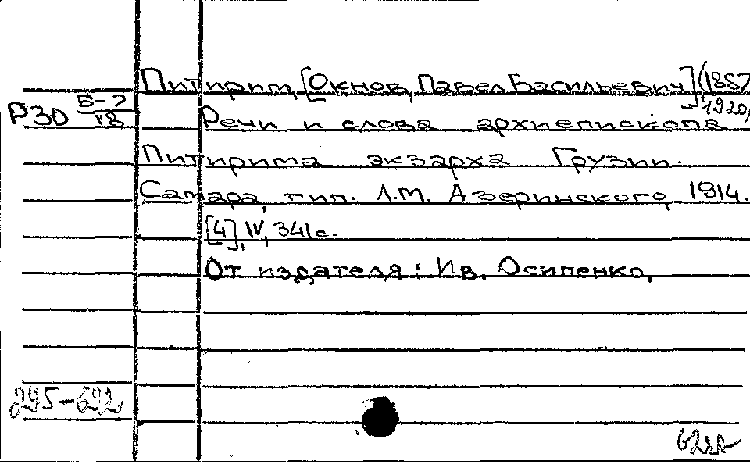 Питирим, [Окнов, Павел Васильевич] (1857
1920)
Р30 Б-7/18 Речи и слова архиепископа
Питирима экзарха Грузии.
Самара, тип. Л.М. Азеринского, 1914.
[4], IV, 341 с.
От издателя: Ив. Осипенко.
295-692